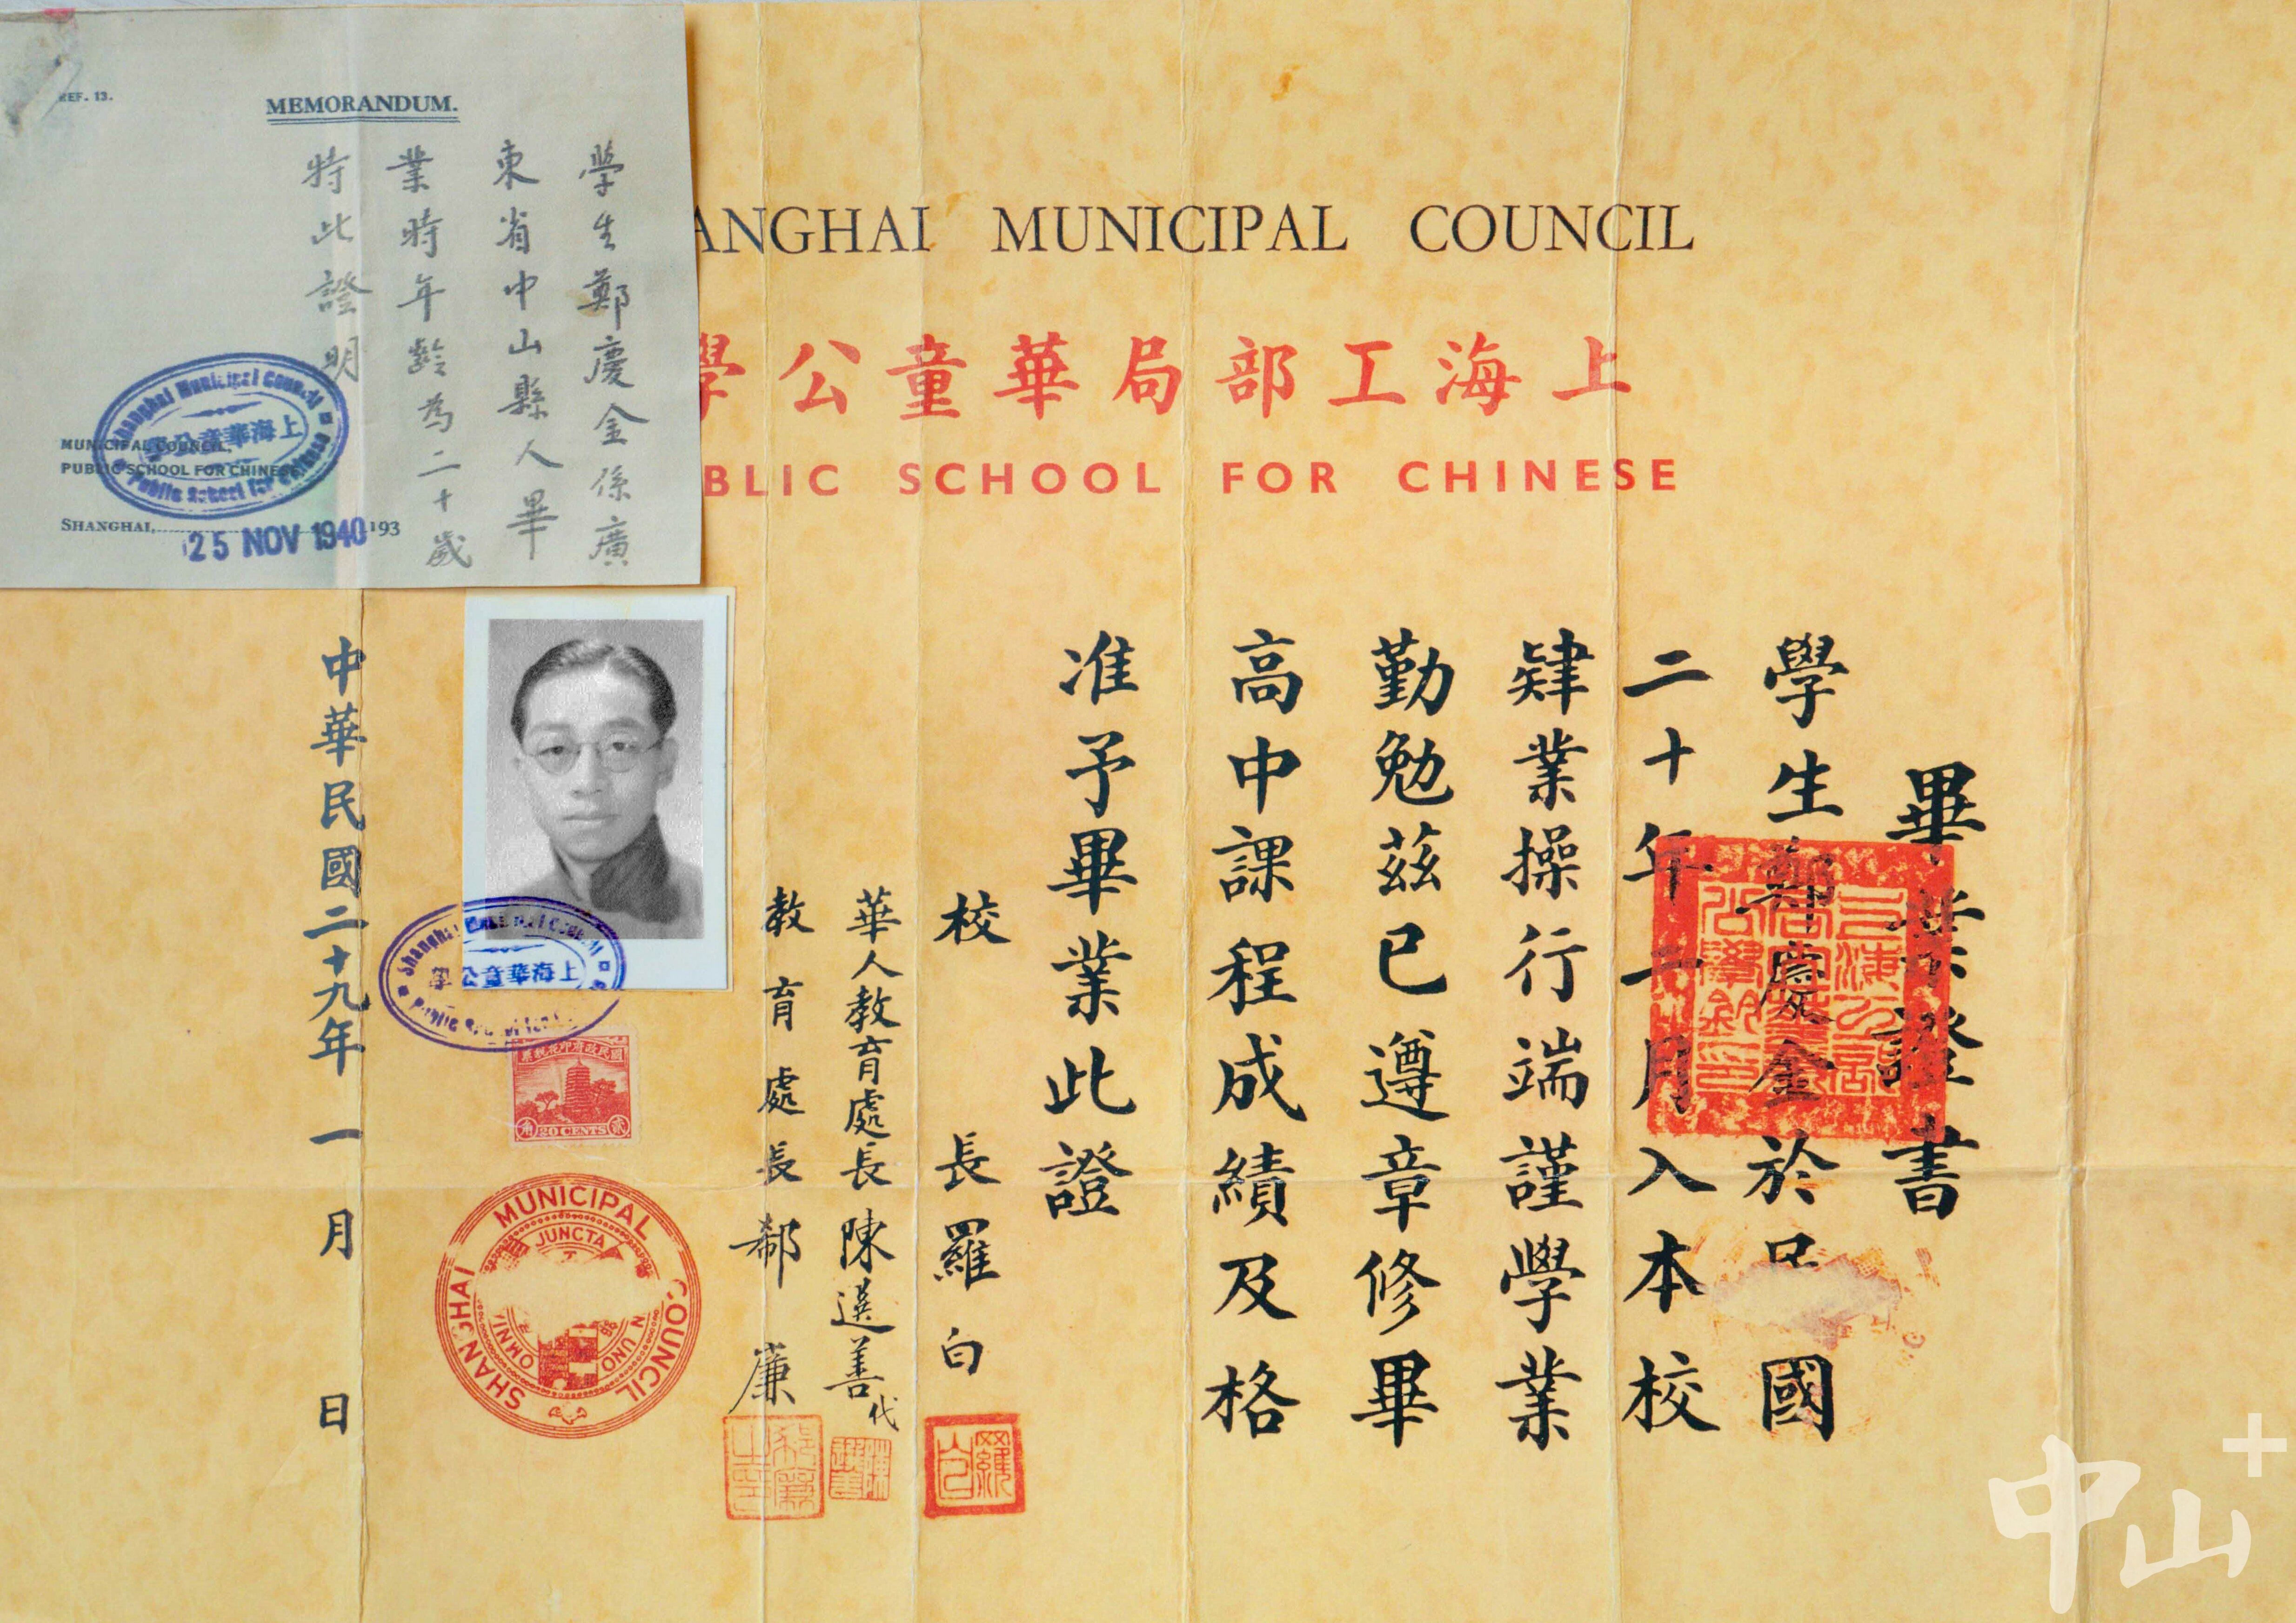 REF. 13.
MEMORANDUM.
學生鄭慶金係廣
東省中山縣人畢
業時年齡為二十歲
特此證明
MUNICIPAL COUNCIL,
PUBLIC SCHOOL FOR CHINESE
SHANGHAI, 193
25 NOV 1940
Shanghai Municipal Council
上海華童公學
Public School for Chinese
ANGHAI MUNICIPAL COUNCIL
上海工部局華童公學
BLIC SCHOOL FOR CHINESE
畢業證書
學生鄭慶金於民國
二十年二月入本校
肄業操行端謹學業
勤勉茲已遵章修畢
高中課程成績及格
准予畢業此證
校長羅白
羅白
華人教育處長陳選善代
陳選善
教育處長郗廉
Shanghai Municipal Council
上海華童公學
Public School for
國民政府印花稅票
貳角
20 CENTS
SHANGHAI MUNICIPAL COUNCIL
OMNIA JUNCTA IN UNO
中華民國二十九年一月日
中山+